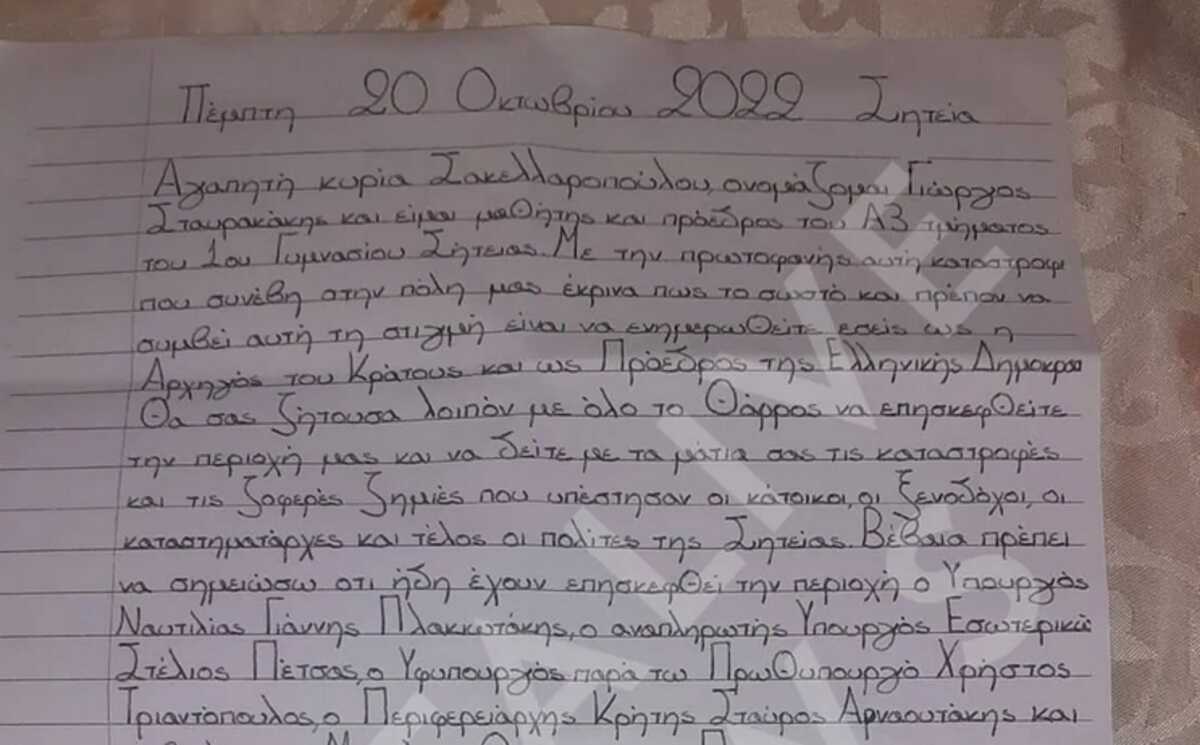 Πέμπτη 20 Οκτωβρίου 2022 Σητεία
Αγαπητή κυρία Σακελλαροπούλου, ονομάζομαι Γιώργος
Σταυρακάκης και είμαι μαθήτης και πρόεδρος του Α3 τμήματος
του 1ου Γυμνασίου Σητειας. Με την πρωτοφανής αυτή καταστροφη
που συνέβη στην πόλη μας έκρινα πως το σωστό και πρέπον να
συμβεί αυτή τη στιγμή είναι να ενημερωθείτε εσείς ως η
Αρχηγός του Κράτους και ως Πρόεδρος της Ελληνικής Δημοκρα
Θα σας ζήτουσα λοιπόν με όλο το Θάρρος να επησκεφθείτε
την περιοχή μας και να δείτε με τα μάτια σας τις καταστροφές
και τις ζοφερές ζημιές που υπέστησαν οι κάτοικοι, οι ξενοδόχοι, οι
καταστηματάρχες και τέλος οι πολίτες της Σητείας. Βέβαια πρέπει
να σημειώσω οτι ήδη έχουν επησκεφθεί την περιοχή ο Υπουργός
Ναυτιλίας Γιάννης Πλακκωτάκης, ο αναπληρωτής Υπουργός Εσωτερικώ
Στέλιος Πέτσας, ο Υφυπουργός παρά τω Πρωθυπουργό Χρήστος
Τριαντόπουλος, ο Περιφερειάρχης Κρήτης Σταύρος Αρναουτάκης και
ALIVE